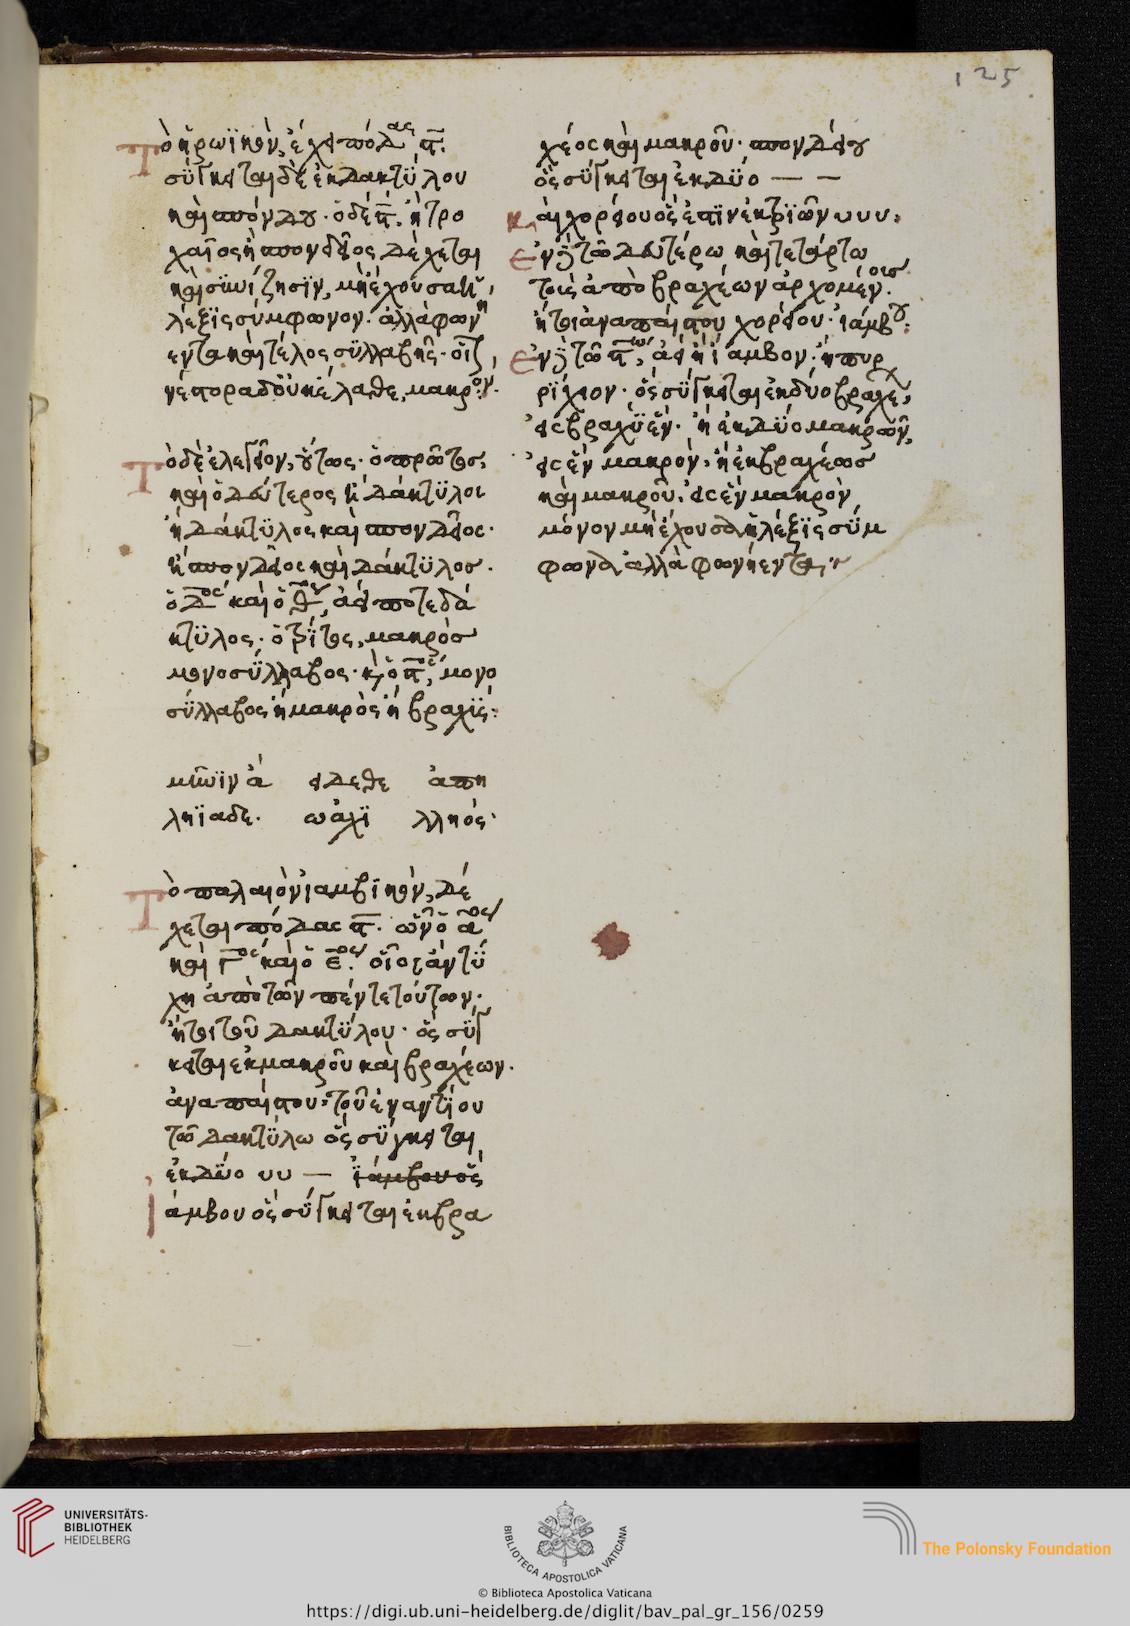 125
Τὸ ἡρωϊκὸν, ἔχει πόδας ϛ̄.
σύγκειται δὲ ἐκ δακτύλου
καὶ σπόνδου· ὁ δὲ ϛ̄. ἢ τρο
χαῖος ἢ σπονδεῖος δέχεται
καὶ συνίζησιν, μὴ ἔχουσα ἡ
λέξις σύμφωνον· ἀλλὰ φωνή
εντα καὶ τέλος συλλαβῆς·
Τὸ δὲ ἐλεγεῖον, οὕτως· ὁ πρῶτος,
καὶ ὁ δεύτερος ἢ δάκτυλοι
ἢ δάκτυλος καὶ σπονδεῖος·
ἢ σπονδεῖος καὶ δάκτυλος·
κτυλος· ὁ τρίτος, μακρὸς
μονοσύλλαβος· καὶ ὁ ϛ̄, μονο
σύλλαβος ἢ μακρὸς ἢ βραχύς:
μῆνιν ἄ ειδεθε ἀπη
ληϊαδε. ωἀχι λληός·
Τὸ παλαιὸν ἰαμβικὸν, δέ
χεται πόδας ϛ̄. ὧν ὁ ᾱος
καὶ γ̄ος καὶ ὁ ε̄ος. οἷος ἂν τύ
χη ἀπὸ τῶν πέντε τούτων·
ἤτοι τοῦ δακτύλου· ὃς σύγ
κειται ἐκ μακροῦ καὶ βραχέων.
ἀναπαίστου· τοῦ ἐναντίου
τῶ δακτύλω ὃς σύγκειται
ἐκ δύο υυ — ἰάμβου ὃς
Ἰάμβου ὃς σύγκειται ἐκ βρα
χέος καὶ μακροῦ· σπονδείου
ὃς σύγκειται ἐκ δύο — —
καὶ χορείου ὅς ἐστιν ἐκ τριῶν υυυ:
Ἐν δὲ τῶ δευτέρω καὶ τετάρτω
τοῖς ἀπὸ βραχέων ἀρχομένοις.
ἤτοι ἀναπαίστου χορείου· ἰάμβου:
Ἐν δὲ τῶ ϛ̄ω, ἀεὶ ἢ ἴαμβον· ἢ πυρ
ρίχιον· ὃς σύγκειται ἐκ δύο βραχέ,
εἰς βραχὺ ἕν· ἢ ἐκ δύο μακρῶν,
εἰς ἓν μακρόν, ἢ ἐκ βραχέως
καὶ μακροῦ, εἰς ἓν μακρὸν,
μόνον μὴ ἔχουσα ἡ λέξις σύμ
φωνα ἀλλὰ φωνήεντα,
UNIVERSITÄTS-
BIBLIOTHEK
HEIDELBERG
BIBLIOTECA APOSTOLICA VATICANA
The Polonsky Foundation
© Biblioteca Apostolica Vaticana
https://digi.ub.uni-heidelberg.de/diglit/bav_pal_gr_156/0259